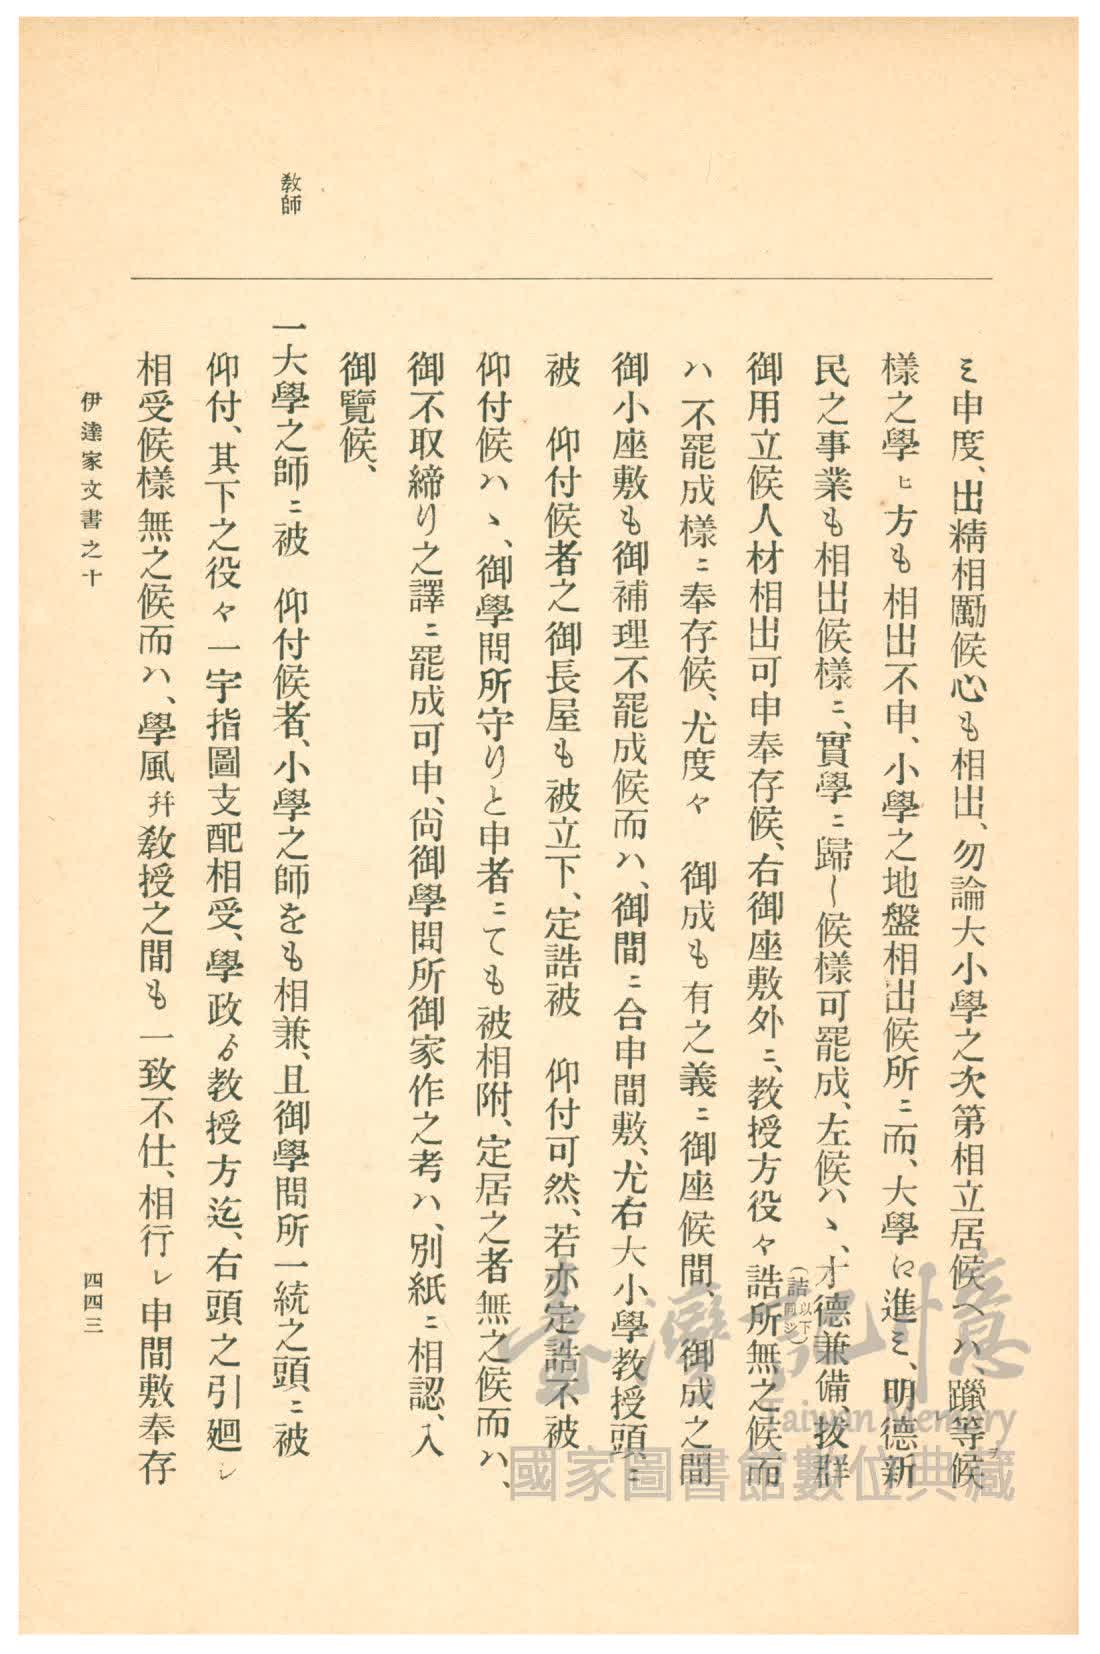 教師
ミ申度、出精相勵候心も相出、勿論大小學之次第相立居候ヘハ、躐等候
樣之學ヒ方も相出不申、小學之地盤相出候所ニ而、大學江進ミ、明德新
民之事業も相出候樣ニ、實學ニ歸し候樣可罷成、左候ハヽ、才德兼備、拔群
御用立候人材相出可申奉存候、右御座敷外ニ、教授方役々誥所無之候而
(詰以下同シ)
ハ不罷成樣ニ奉存候、尤度々　御成も有之義ニ御座候間、御成之間
御小座敷も御補理不罷成候而ハ、御間ニ合申間敷、尤右大小學教授頭ニ
被　仰付候者之御長屋も被立下、定誥被　仰付可然、若亦定誥不被
仰付候ハヽ、御學問所守りと申者ニても被相附、定居之者無之候而ハ、
御不取締り之譯ニ罷成可申、尙御學問所御家作之考ハ、別紙ニ相認、入
御覽候、
一大學之師ニ被　仰付候者、小學之師をも相兼、且御學問所一統之頭ニ被
仰付、其下之役々一宇指圖支配相受、學政ゟ教授方迄、右頭之引廻シ
相受候樣無之候而ハ、學風幷教授之間も一致不仕、相行レ申間敷奉存
伊達家文書之十
四四三
臺灣記憶
Taiwan Memory
國家圖書館數位典藏